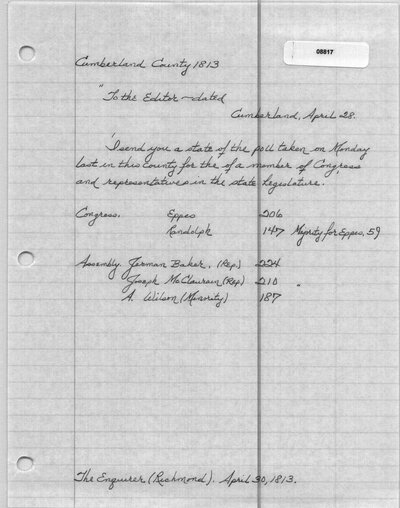 08817
Cumberland County 1813
"To the Editor - dated
Cumberland, April 28.
'I send you a state of the poll taken on Monday
last in this County for the of a member of Congress
and representatives in the state legislature.
Congress. Eppes 206
Randolph 147 Majority for Eppes, 59
Assembly. Jerman Baker, (Rep.) 224
Joseph McClaurain (Rep) 210 "
A. Wilson (Minority) 187
The Enquirer (Richmond). April 30, 1813.